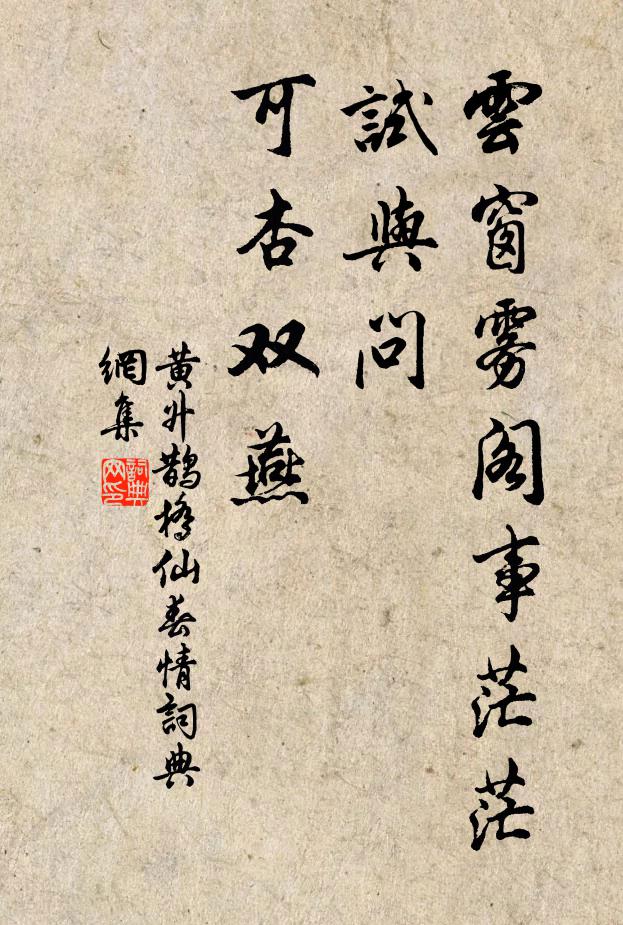 雲窗雾阁事茫茫
試與問
可杏双燕
黄升鵲橋仙春情詞典
網集
詞典网印